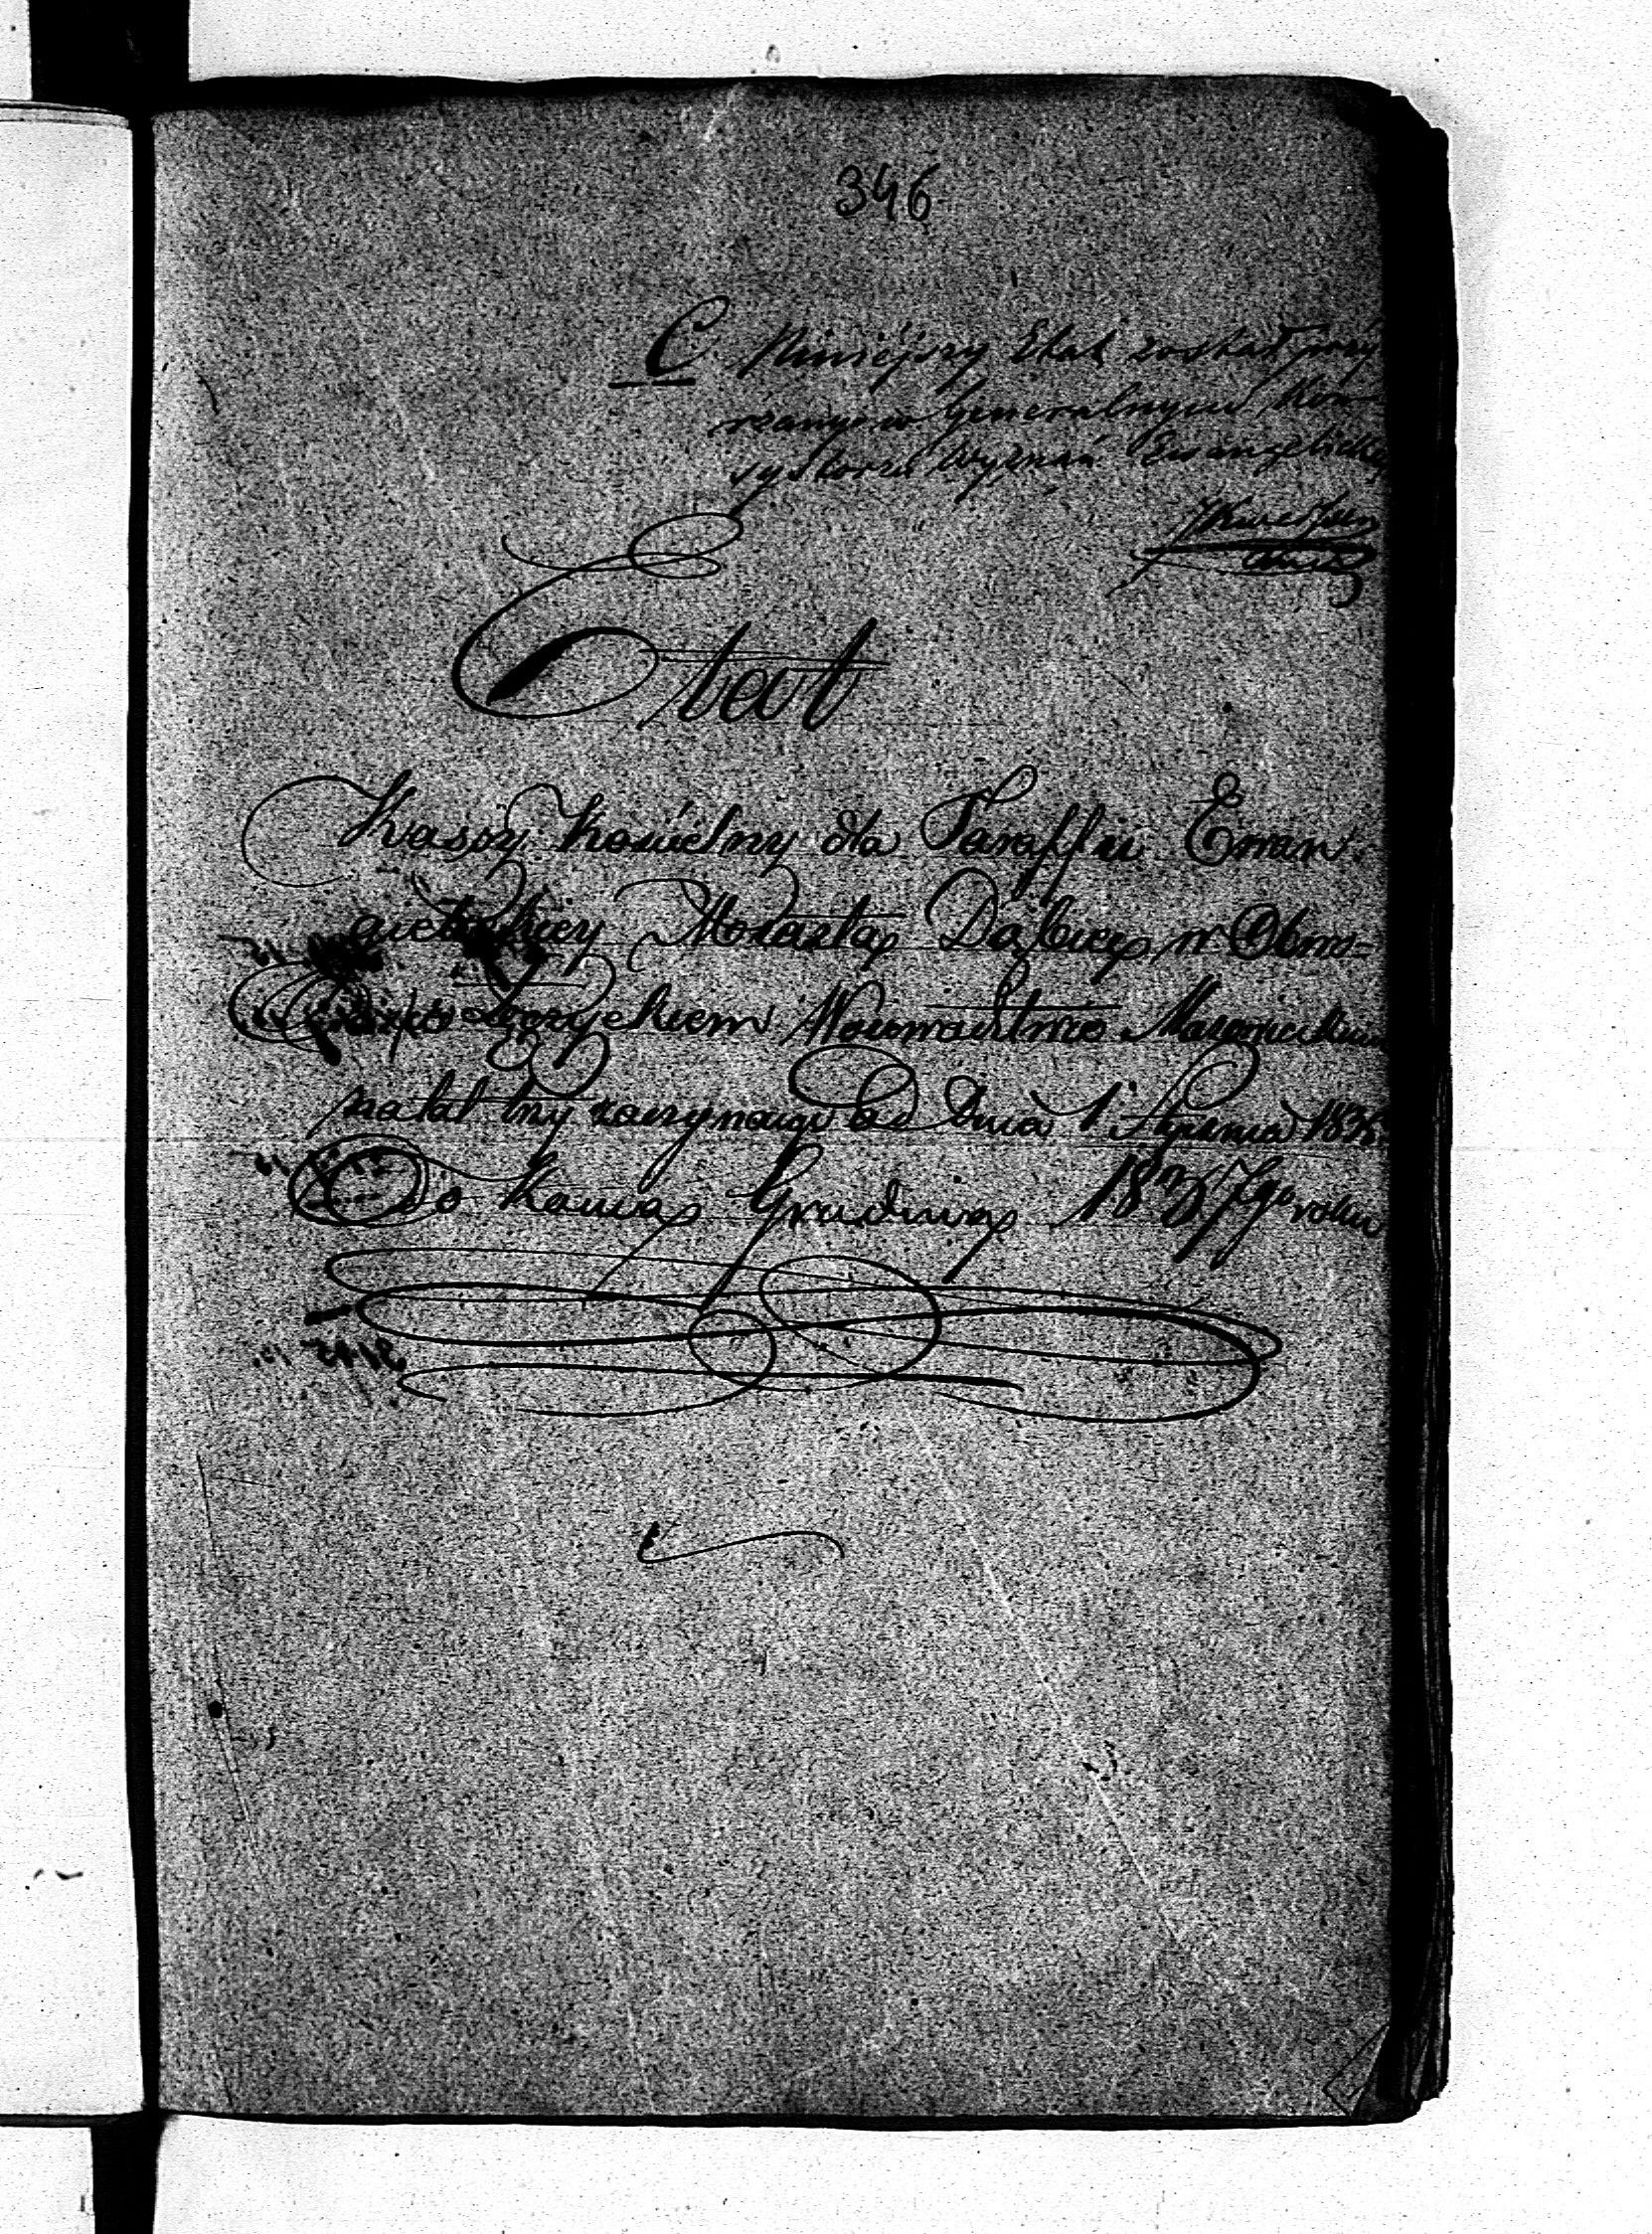 346
C. Niniejszy Etat został przy
rzany w Generalnym Kon-
systorzu Wyznań Ewangelickich
Etat
Kassy Kościelny dla Paraffii Ewan
gielickiey Miasta Dąbia w Obwo-
dzie Łęczyckiem Woiewództwie Mazowieckiem
na lat trzy zaczynaiąc od Dnia 1 Stycznia 183
Do Końca Grudnia 1837go roku